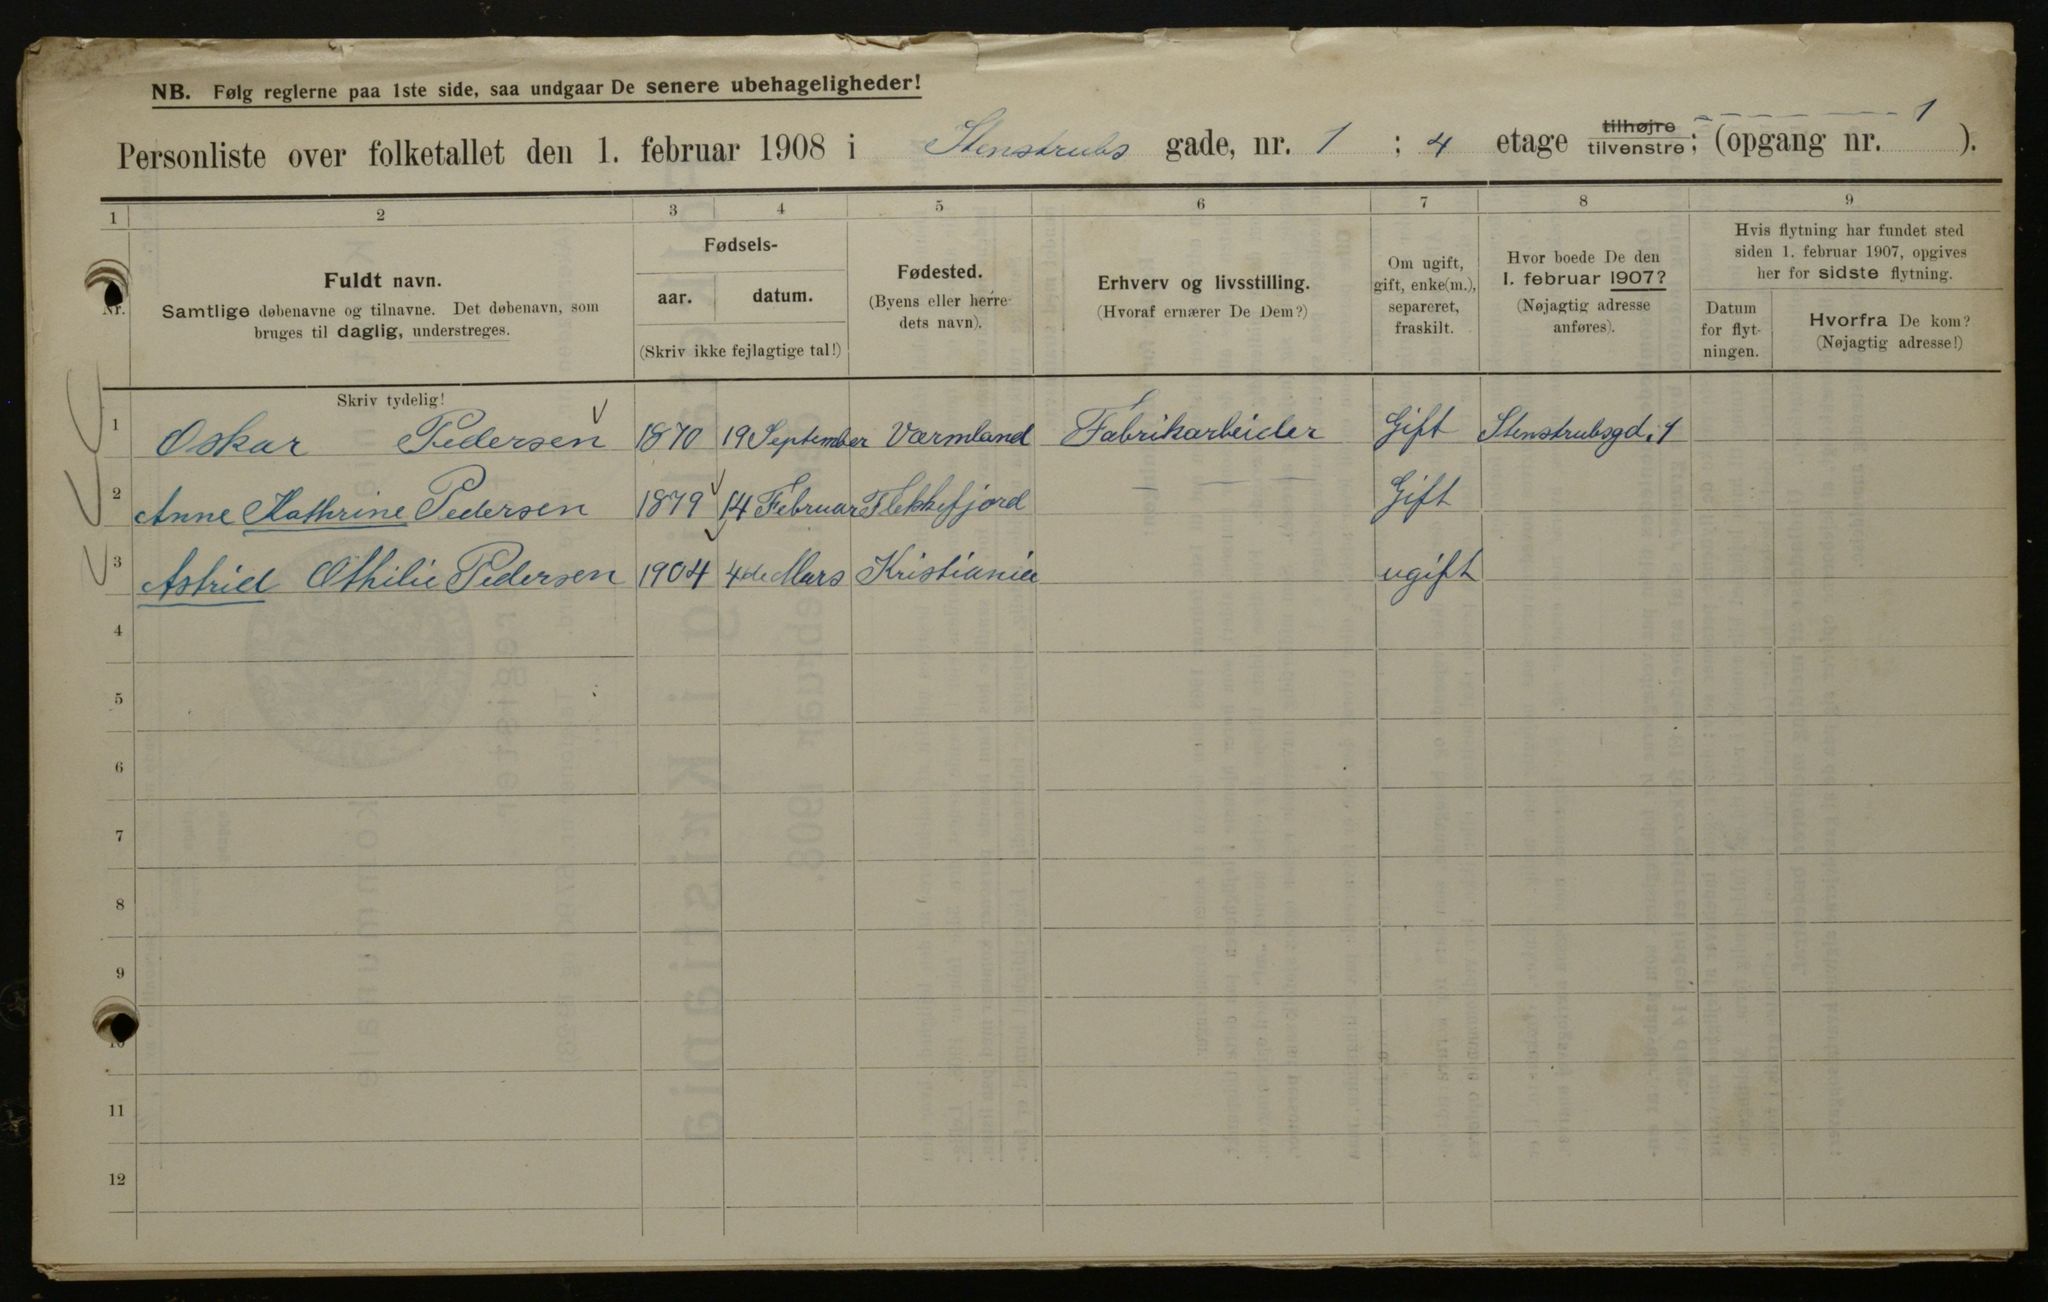 NB. Følg reglerne paa 1ste side, saa undgaar De senere ubehageligheder!
Personliste over folketallet den 1. februar 1908 i Stenstrubs gade, nr. 1 ; 4 etage tilhøjre tilvenstre ; (opgang nr. 1 ).
1 2 3 4 5 6 7 8 9
Nr.
Fuldt navn.
Samtlige døbenavne og tilnavne. Det døbenavn, som
bruges til daglig, understreges.
Fødsels-
aar. datum.
(Skriv ikke fejlagtige tal!)
Fødested.
(Byens eller herre-
dets navn).
Erhverv og livsstilling.
(Hvoraf ernærer De Dem?)
Om ugift,
gift, enke(m.),
separeret,
fraskilt.
Hvor boede De den
1. februar 1907?
(Nøjagtig adresse
anføres).
Hvis flytning har fundet sted
siden 1. februar 1907, opgives
her for sidste flytning.
Datum
for flyt-
ningen.
Hvorfra De kom?
(Nøjagtig adresse!)
Skriv tydelig!
1 Oskar Pedersen 1870 19 September Värmland Fabrikarbeider Gift Stenstrubsgd. 1
2 Anne Kathrine Pedersen 1879 14 Februar Flekkefjord — — Gift
3 Astrid Othilie Pedersen 1904 4de Mars Kristiania ugift
4
5
6
7
8
9
10
11
12